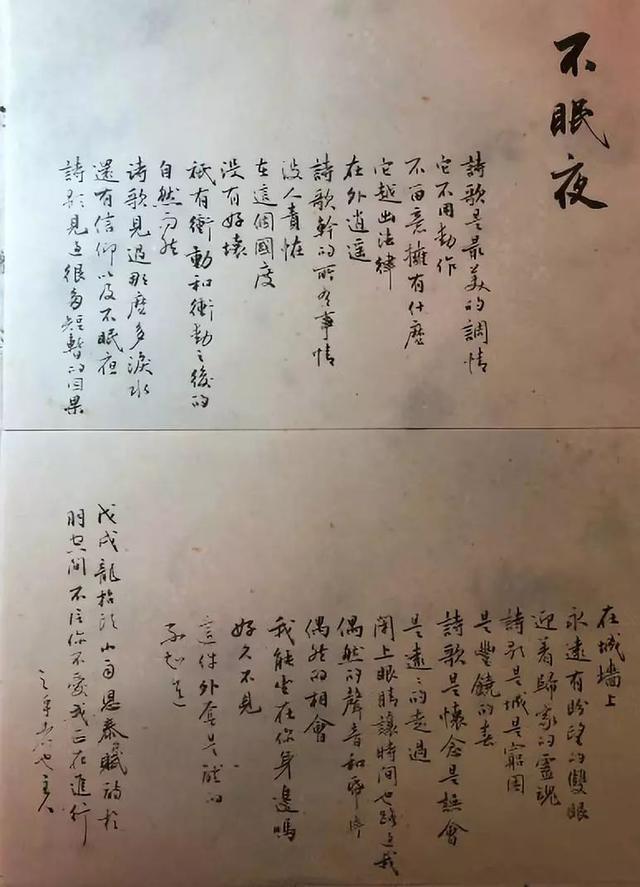 不眠夜
詩歌是最美的調情
它不用動作
不留意擁有什麼
它越出法律
在外逍遙
詩歌幹的所有事情
沒人責怪
在這個國度
沒有好壞
祇有衝動和衝動之後的
自然而然
詩歌見過那麼多淚水
還有信仰以及不眠夜
詩歌見過很多短暫的因果
在城墻上
永遠有盼望的雙眼
迎著歸家的靈魂
詩歌是城是窮困
是豐饒的春
詩歌是懷念是誤會
是遠遠的走過
閉上眼睛讓時間也路過我
偶然的聲音和
偶然的相會
我能坐在你身邊嗎
好久不見
這件外套是
不知道
戊戌龍抬頭 恩泰賦詩於
朋 間 不信你不愛我正在進行
主人